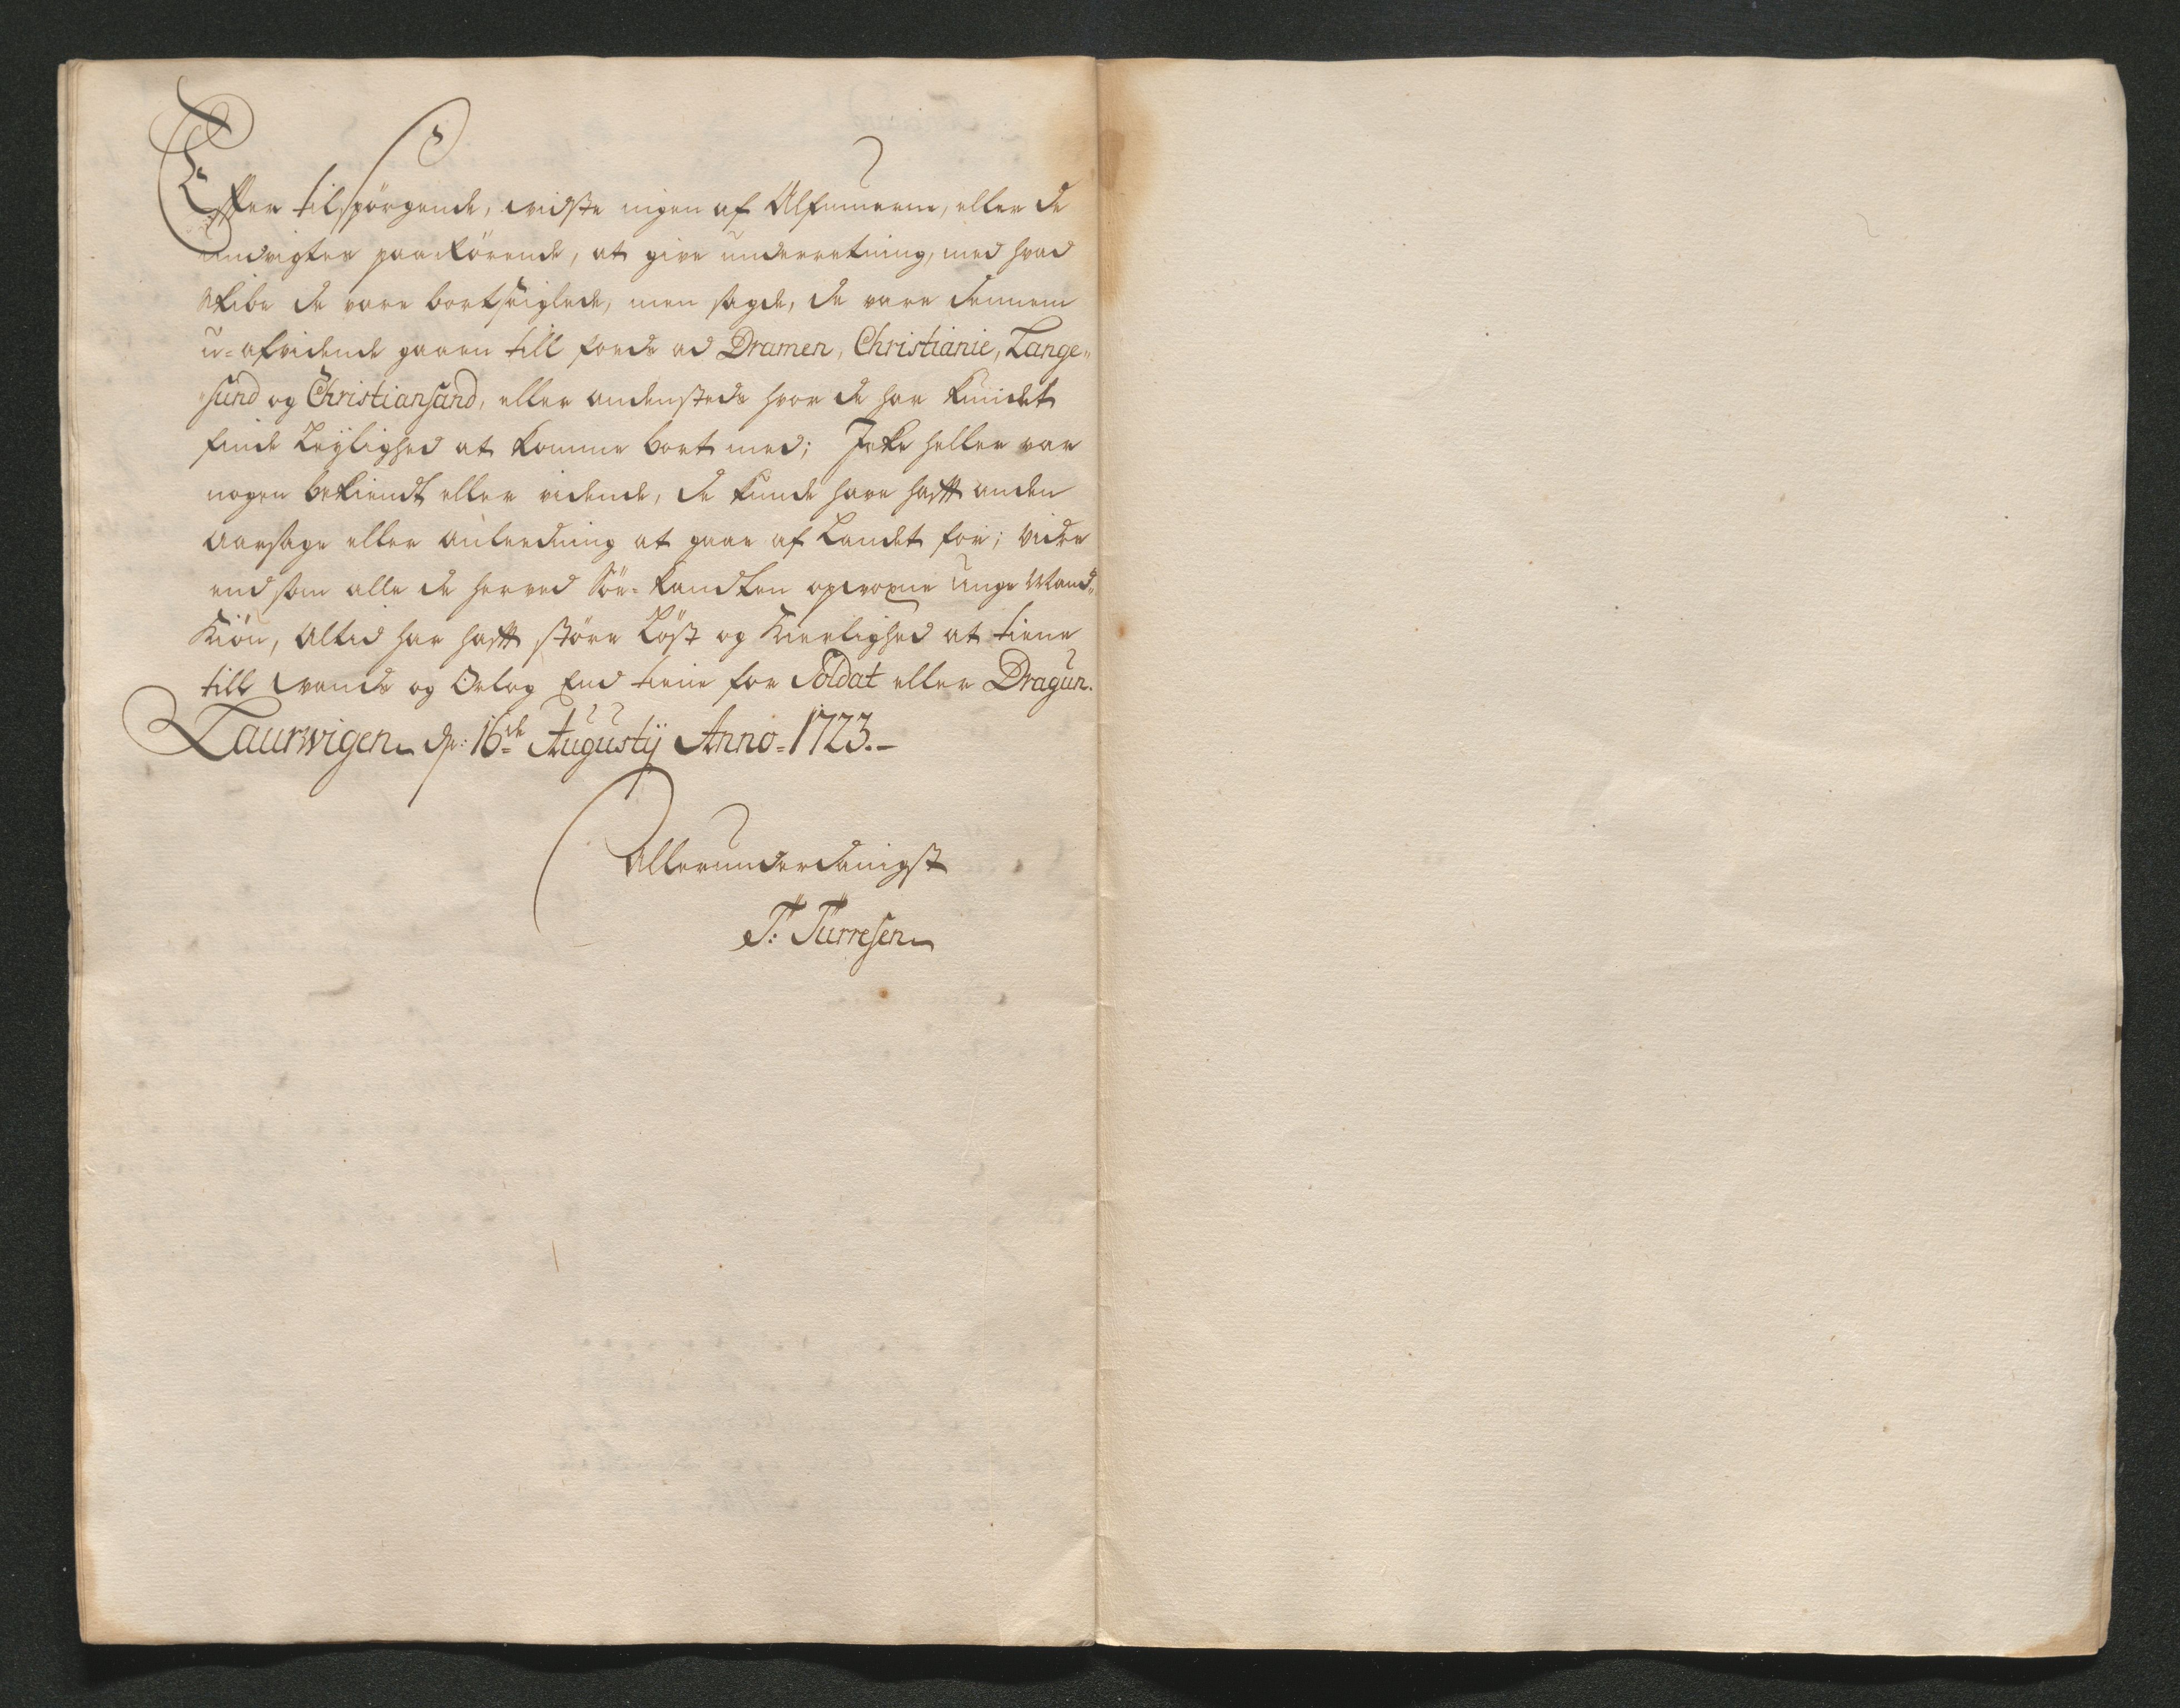 Effter tilspörgende, vidste ingen af Almuerne, eller de
undvigtes paarörende, at give underretning, med hvad
Skibe de vare bortseiglede, men sagde, de vare dennem
u-afvidende gaaen till fods ad Dramen, Christianie, Lange„
sund og Christiansand, eller andensteds hvor de har kundet
finde Leylighed at komme bort med; Icke heller var
nogen bekiendt eller vidende, de kunde have hafft anden
Aarsage eller anleedning at gaae af Landet for; vidre
end som alle de herved Söe-kandten opvoxne unge Mand„
Kiön, Altid har hafft större Löst og Kierlighed at tiene
till vands og Orlog End tiene for Soldat eller Dragun.
Laurwigen d: 16de Augustij Anno 1723.
Allerunderdanigst
T: Türresen